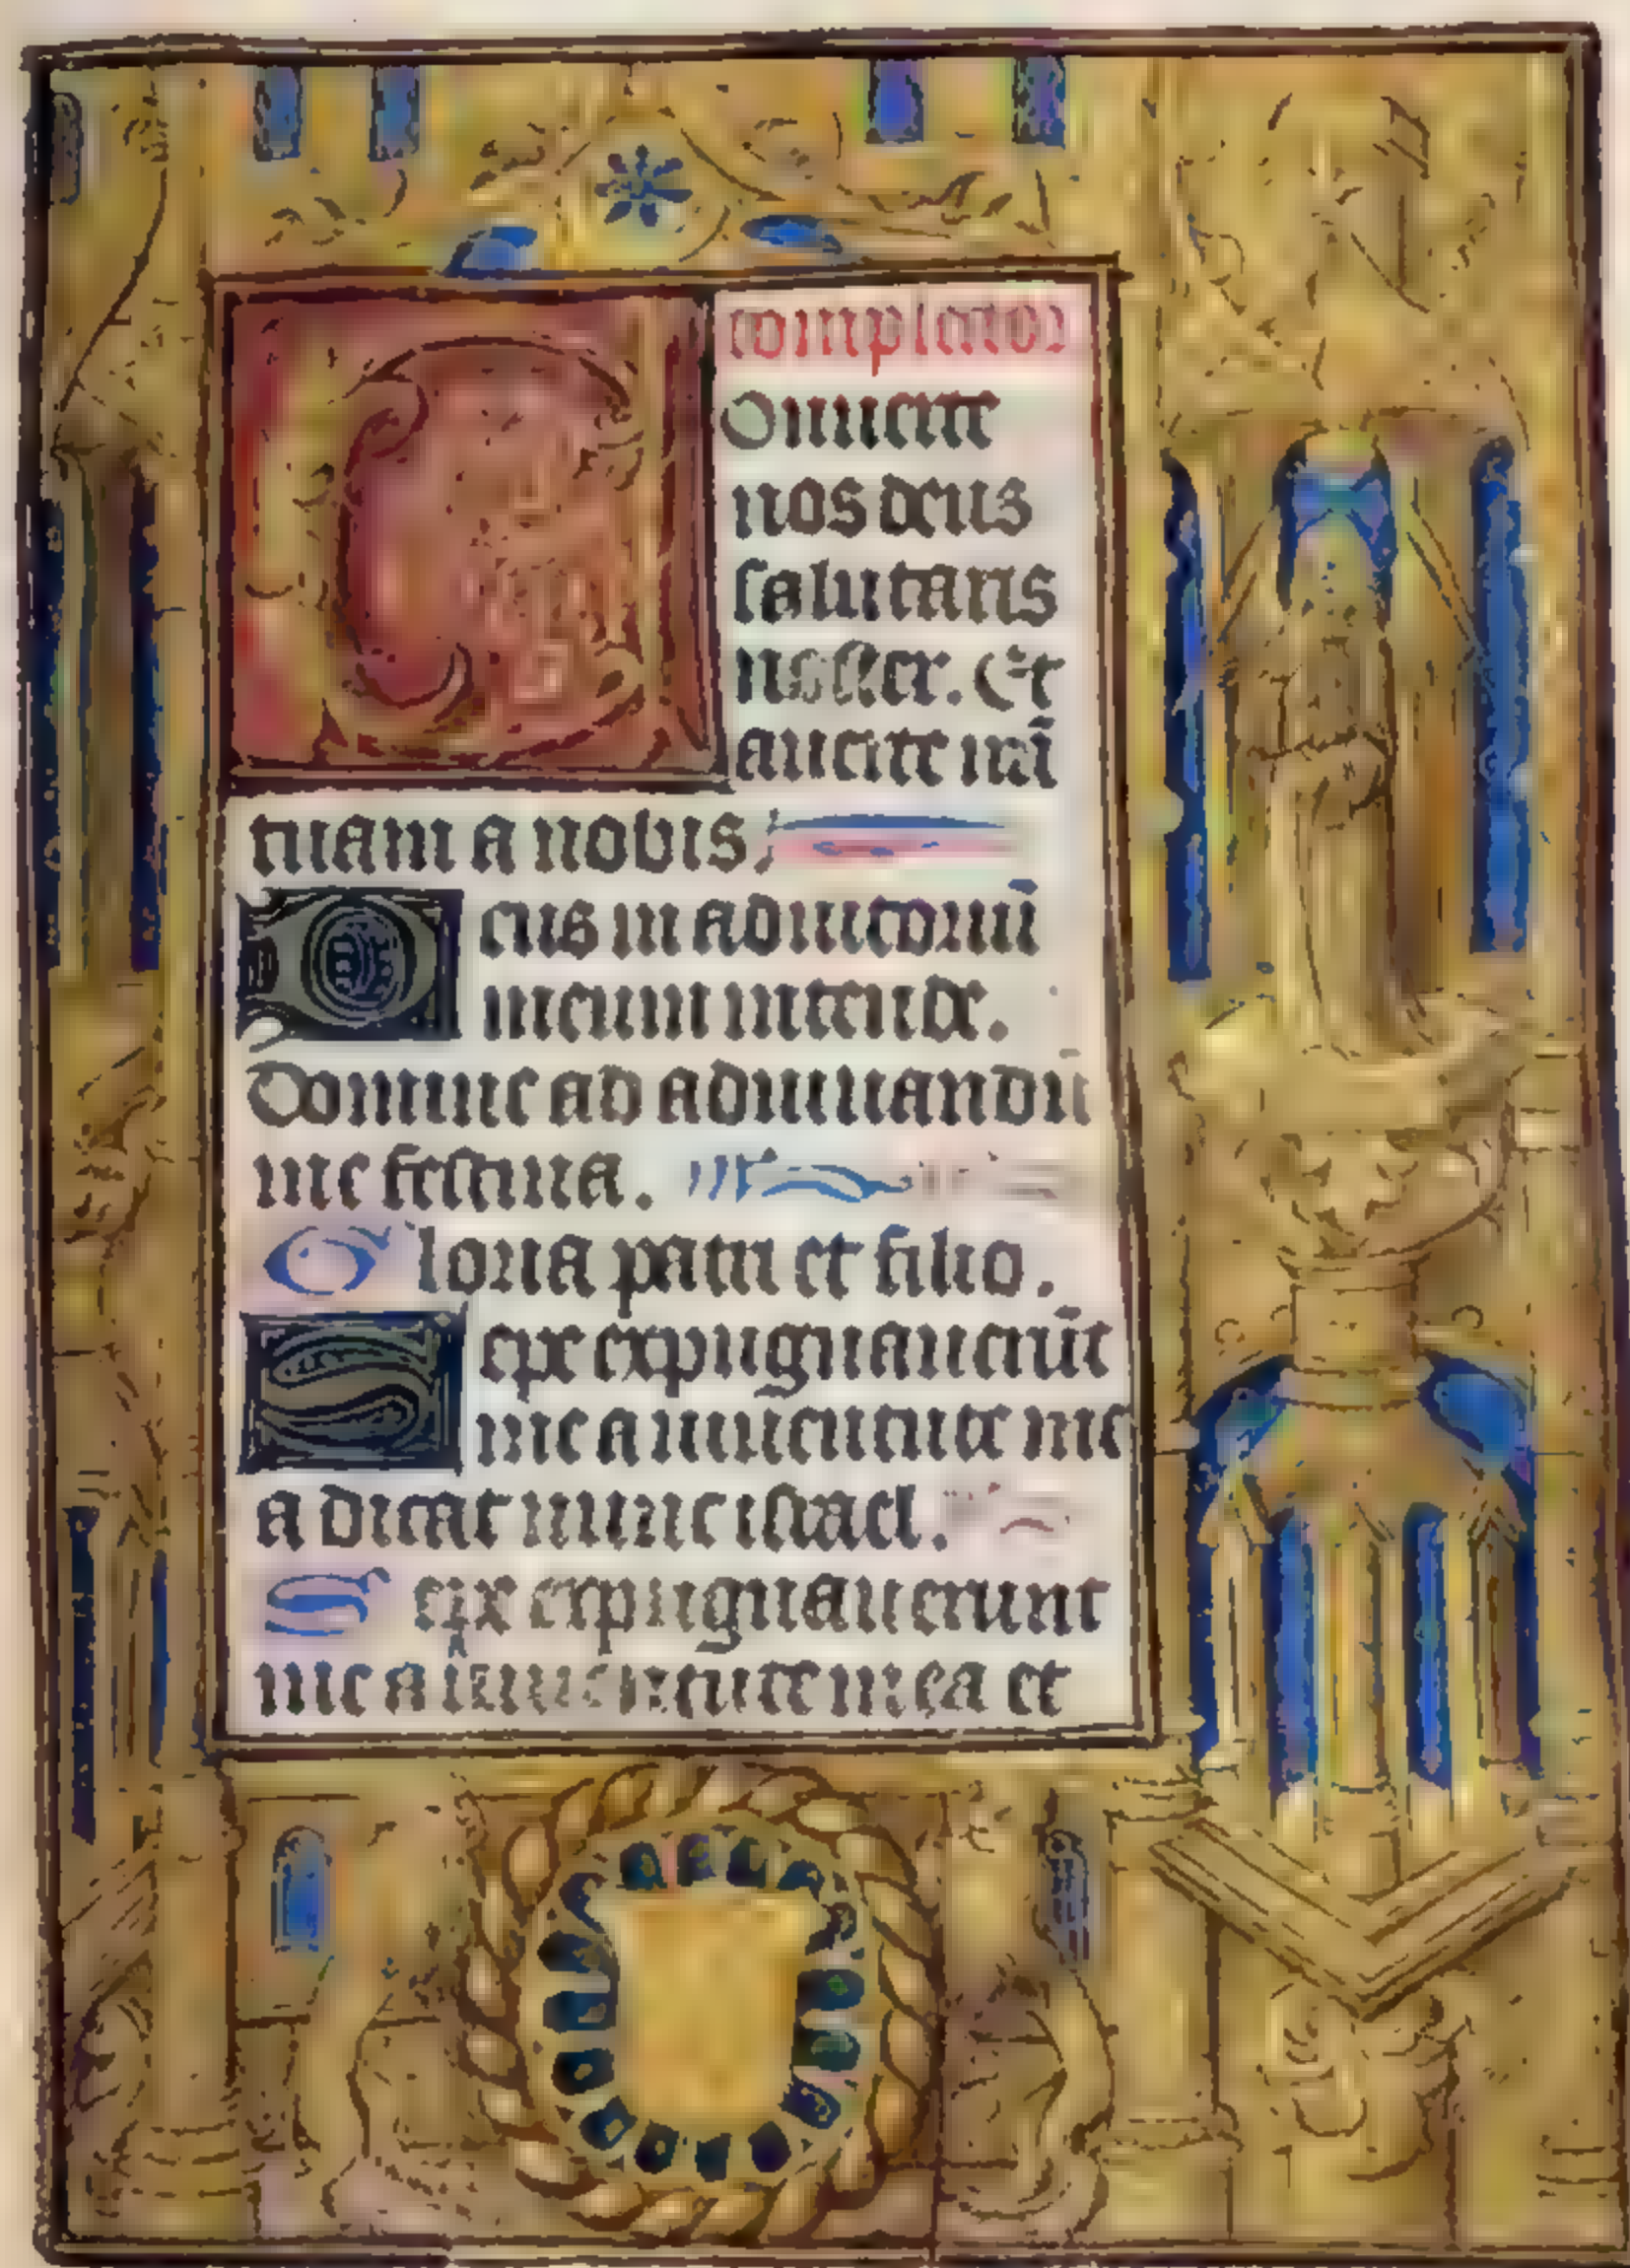 completor
Conuerte
nos deus
salutaris
noster. Et
auerte irā
tuam a nobis.
Deus in adiutoriū
meum intende.
Domine ad adiuuandū
me festina.
Gloria patri et filio.
Sepe expugnauerūt
me a iuuentute me
a dicat nunc israel.
Sepe expugnauerunt
me a iuuentute mea et